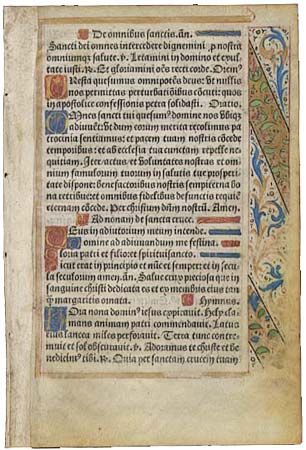 De omnibus sanctis. an.
Sancti dei omnes intercedere dignemini p nostra
omniumqz salute. v. Letamini in domino et exultate iusti. R. Et gloriamini oēs recti corde. Orem
Resta quesumus omnipotēs deus: vt nullis
nos permittas perturbatiōibus cōcuti: quos
in apostolice confessionis petra solidasti. Oratio.
Omnes sancti tui quesumꝰ domine nos vbiqz
adiuuēt: vt dum eorum merita recolimus patrocinia
sentiamus: et pacem tuam nostris cōcede
temporibus: et ab ecclesia tua cunctam repelle nequitiam.
Iter: actus: et voluntates nostras et omnium
famulorum tuorum in salutis tue prosperitate
dispone: benefactoribus nostris sempiterna bona
retribue: et omnibus fidelibus defunctis requiē
eternam cōcede. Per christum dn̄m nostrū. Amen.
Ad nonam de sancta cruce.
Deus in adiutorium meum intende.
Domine ad adiuuandum me festina.
Gloria patri et filio: et spiritui sancto.
Sicut erat in principio et nunc et semper: et in secula
seculorum amen. an. Salue crux preciosa que in
sanguine christi dedicata es et ex membris eius tanqz
margaritis ornata. Hymnus.
Hora nona dominꝰ iesus expirauit. Hely clamans
animam patri commendauit. Latus
eius lancea miles perforauit. Terra tunc contremuit
et sol obscurauit. v. Adoramus te christe et benedicimꝰ
tibi. R. Quia per sanctam crucem tuam